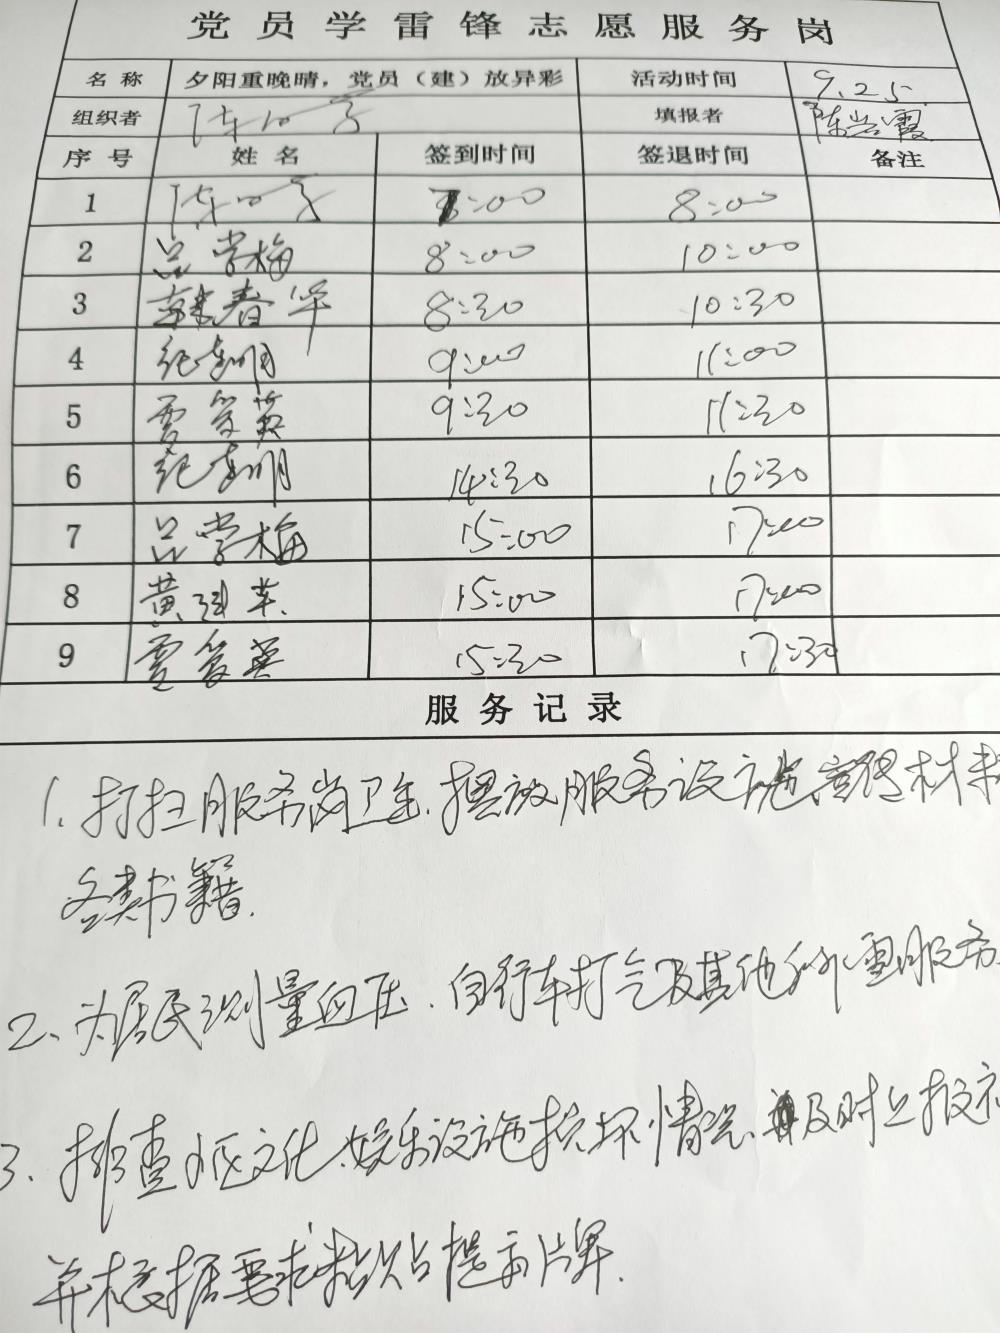 党员学雷锋志愿服务岗
名称 夕阳重晚晴，党员（建）放异彩 活动时间 9.25.
组织者 填报者 陈岩霞
序号 姓名 签到时间 签退时间 备注
1 :00 8:00
2 吕学梅 8:00 10:00
3 韩春华 8:30 10:30
4 纪 明 9:00 11:00
5 贾 英 9:30 11:30
6 纪 明 14:30 16:30
7 吕学梅 15:00 17:00
8 黄 15:00 17:00
9 贾 英 15:30 17:30
服务记录
1、打扫服务岗卫生.摆放服务设施宣传材料
各类书籍.
2、为居民测量血压.自行车打气及其他 服务.
3、排查小区文化、娱乐设施损坏情况、及时上报社
并根据要求粘贴提示牌.